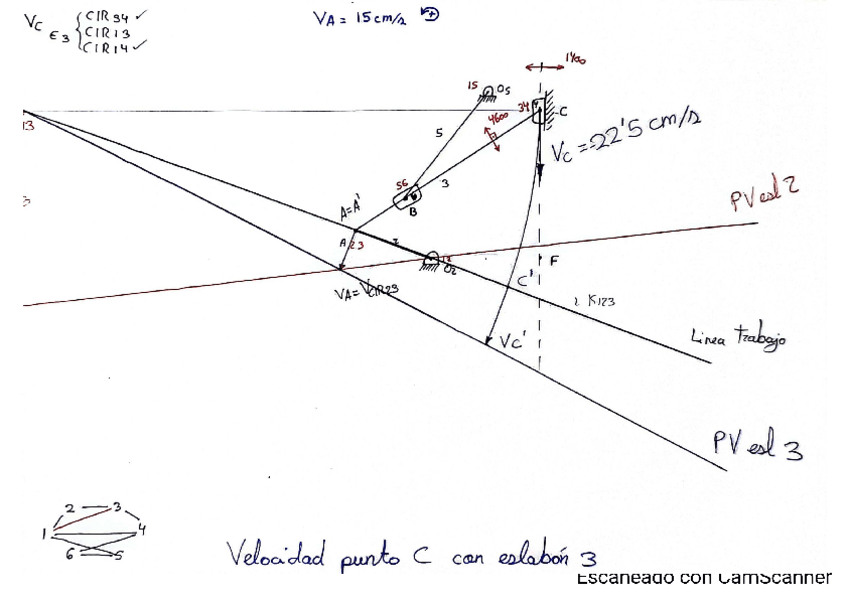 Vc ε3 { CIR 34 ✓
CIR 13
CIR 14 ✓
VA = 15 cm/s
1∞
15
O5
34
C
4∞
5
Vc = -22'5 cm/s
13
3
56
B
PV esl 2
A=A'
A
23
2
12
O2
F
VA = VCIR23
C'
K123
Vc'
Linea trabajo
PV esl 3
2 3
1 4
6 5
Velocidad punto C con eslabón 3
Escaneado con CamScanner